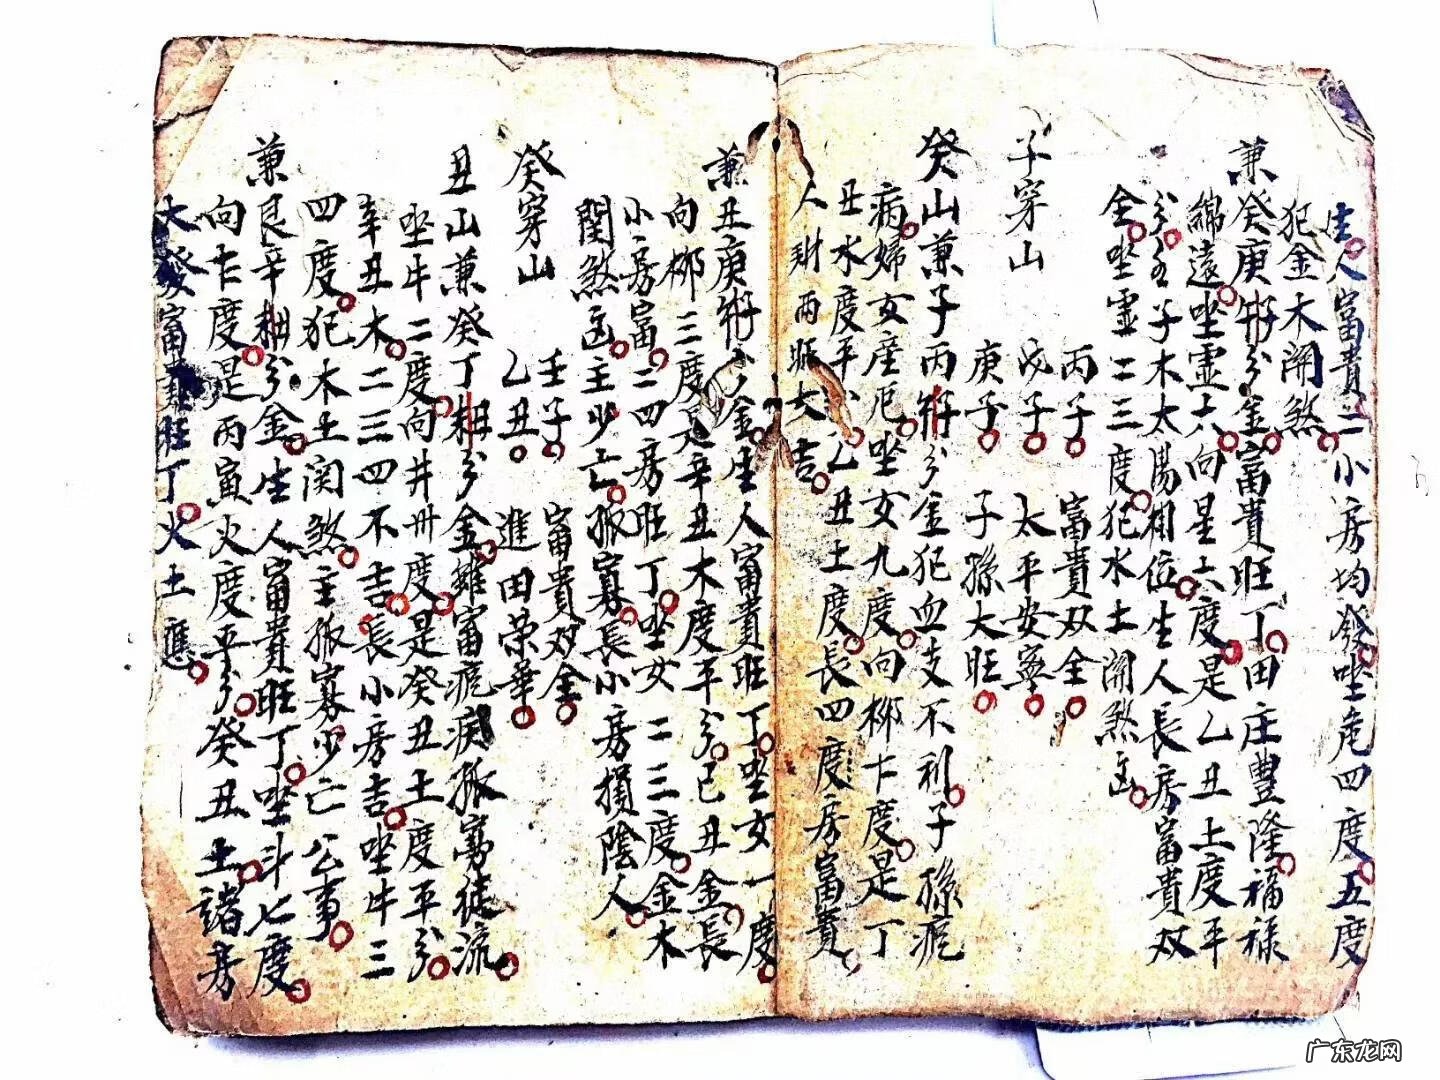 生人富貴二小房均發坐危四度五度
犯金木關煞
兼癸庚
分金富貴旺丁田庄豊隆福祿
綿遠坐虛六向星六度是乙丑土度平
分金子木太陽相位生人長房富貴双
全坐
二三度犯水土關煞凶
子穿山
丙子 富貴双全
戊子 太平安寧
庚子 子孫大旺
癸山兼子丙
分金犯血支不利子孫
病婦女產厄坐女九度向柳七度是丁
丑水度平分乙丑土度長四度房富貴
人財兩旺大吉
兼丑庚
分金生人富貴旺丁坐女一度
向柳三度是辛丑木度平分己丑金長
小房富二四房旺丁坐女二三度金木
關煞凶主少亡孤寡長小房損陰人
癸穿山
壬子 富貴双全
乙丑 進田榮華
丑山兼癸丁
分金雖富
孤寡徒流
坐牛二度向井卅度是癸丑土度平分
辛丑木二三四不吉長小房吉坐牛三
四度犯木土関煞主孤寡少亡公事
兼艮辛
分金生人富貴旺丁坐斗七度
向七度是丙寅火度平分癸丑土諸房
大發富貴旺丁火土應
广东龙网